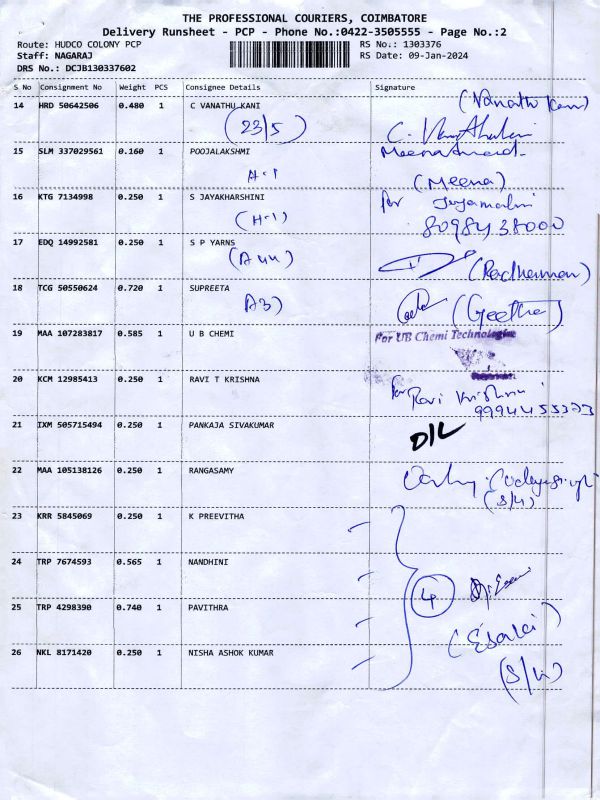 THE PROFESSIONAL COURIERS, COIMBATORE
Delivery Runsheet - PCP - Phone No.:0422-3505555 - Page No.:2
Route: HUDCO COLONY PCP
RS No.: 1303376
Staff: NAGARAJ
RS Date: 09-Jan-2024
DRS No.: DCJB130337602
S No Consignment No Weight PCS Consignee Details Signature
14 HRD 50642506 0.480 1 C VANATHU KANI (Vanathu Kani)
(23/5)
15 SLM 337029561 0.160 1 POOJALAKSHMI
A-1 (Meena)
16 KTG 7134998 0.250 1 S JAYAKHARSHINI for
(H-1) 8098438000
17 EDQ 14992581 0.250 1 S P YARNS
(A44)
18 TCG 50550624 0.720 1 SUPREETA (Geetha)
A3)
19 MAA 107283817 0.585 1 U B CHEMI For UB Chemi Technologie
20 KCM 12985413 0.250 1 RAVI T KRISHNA for Ravi Krishna
21 IXM 505715494 0.250 1 PANKAJA SIVAKUMAR D/L
22 MAA 105138126 0.250 1 RANGASAMY
23 KRR 5845069 0.250 1 K PREEVITHA
24 TRP 7674593 0.565 1 NANDHINI
4
25 TRP 4298390 0.740 1 PAVITHRA
26 NKL 8171420 0.250 1 NISHA ASHOK KUMAR